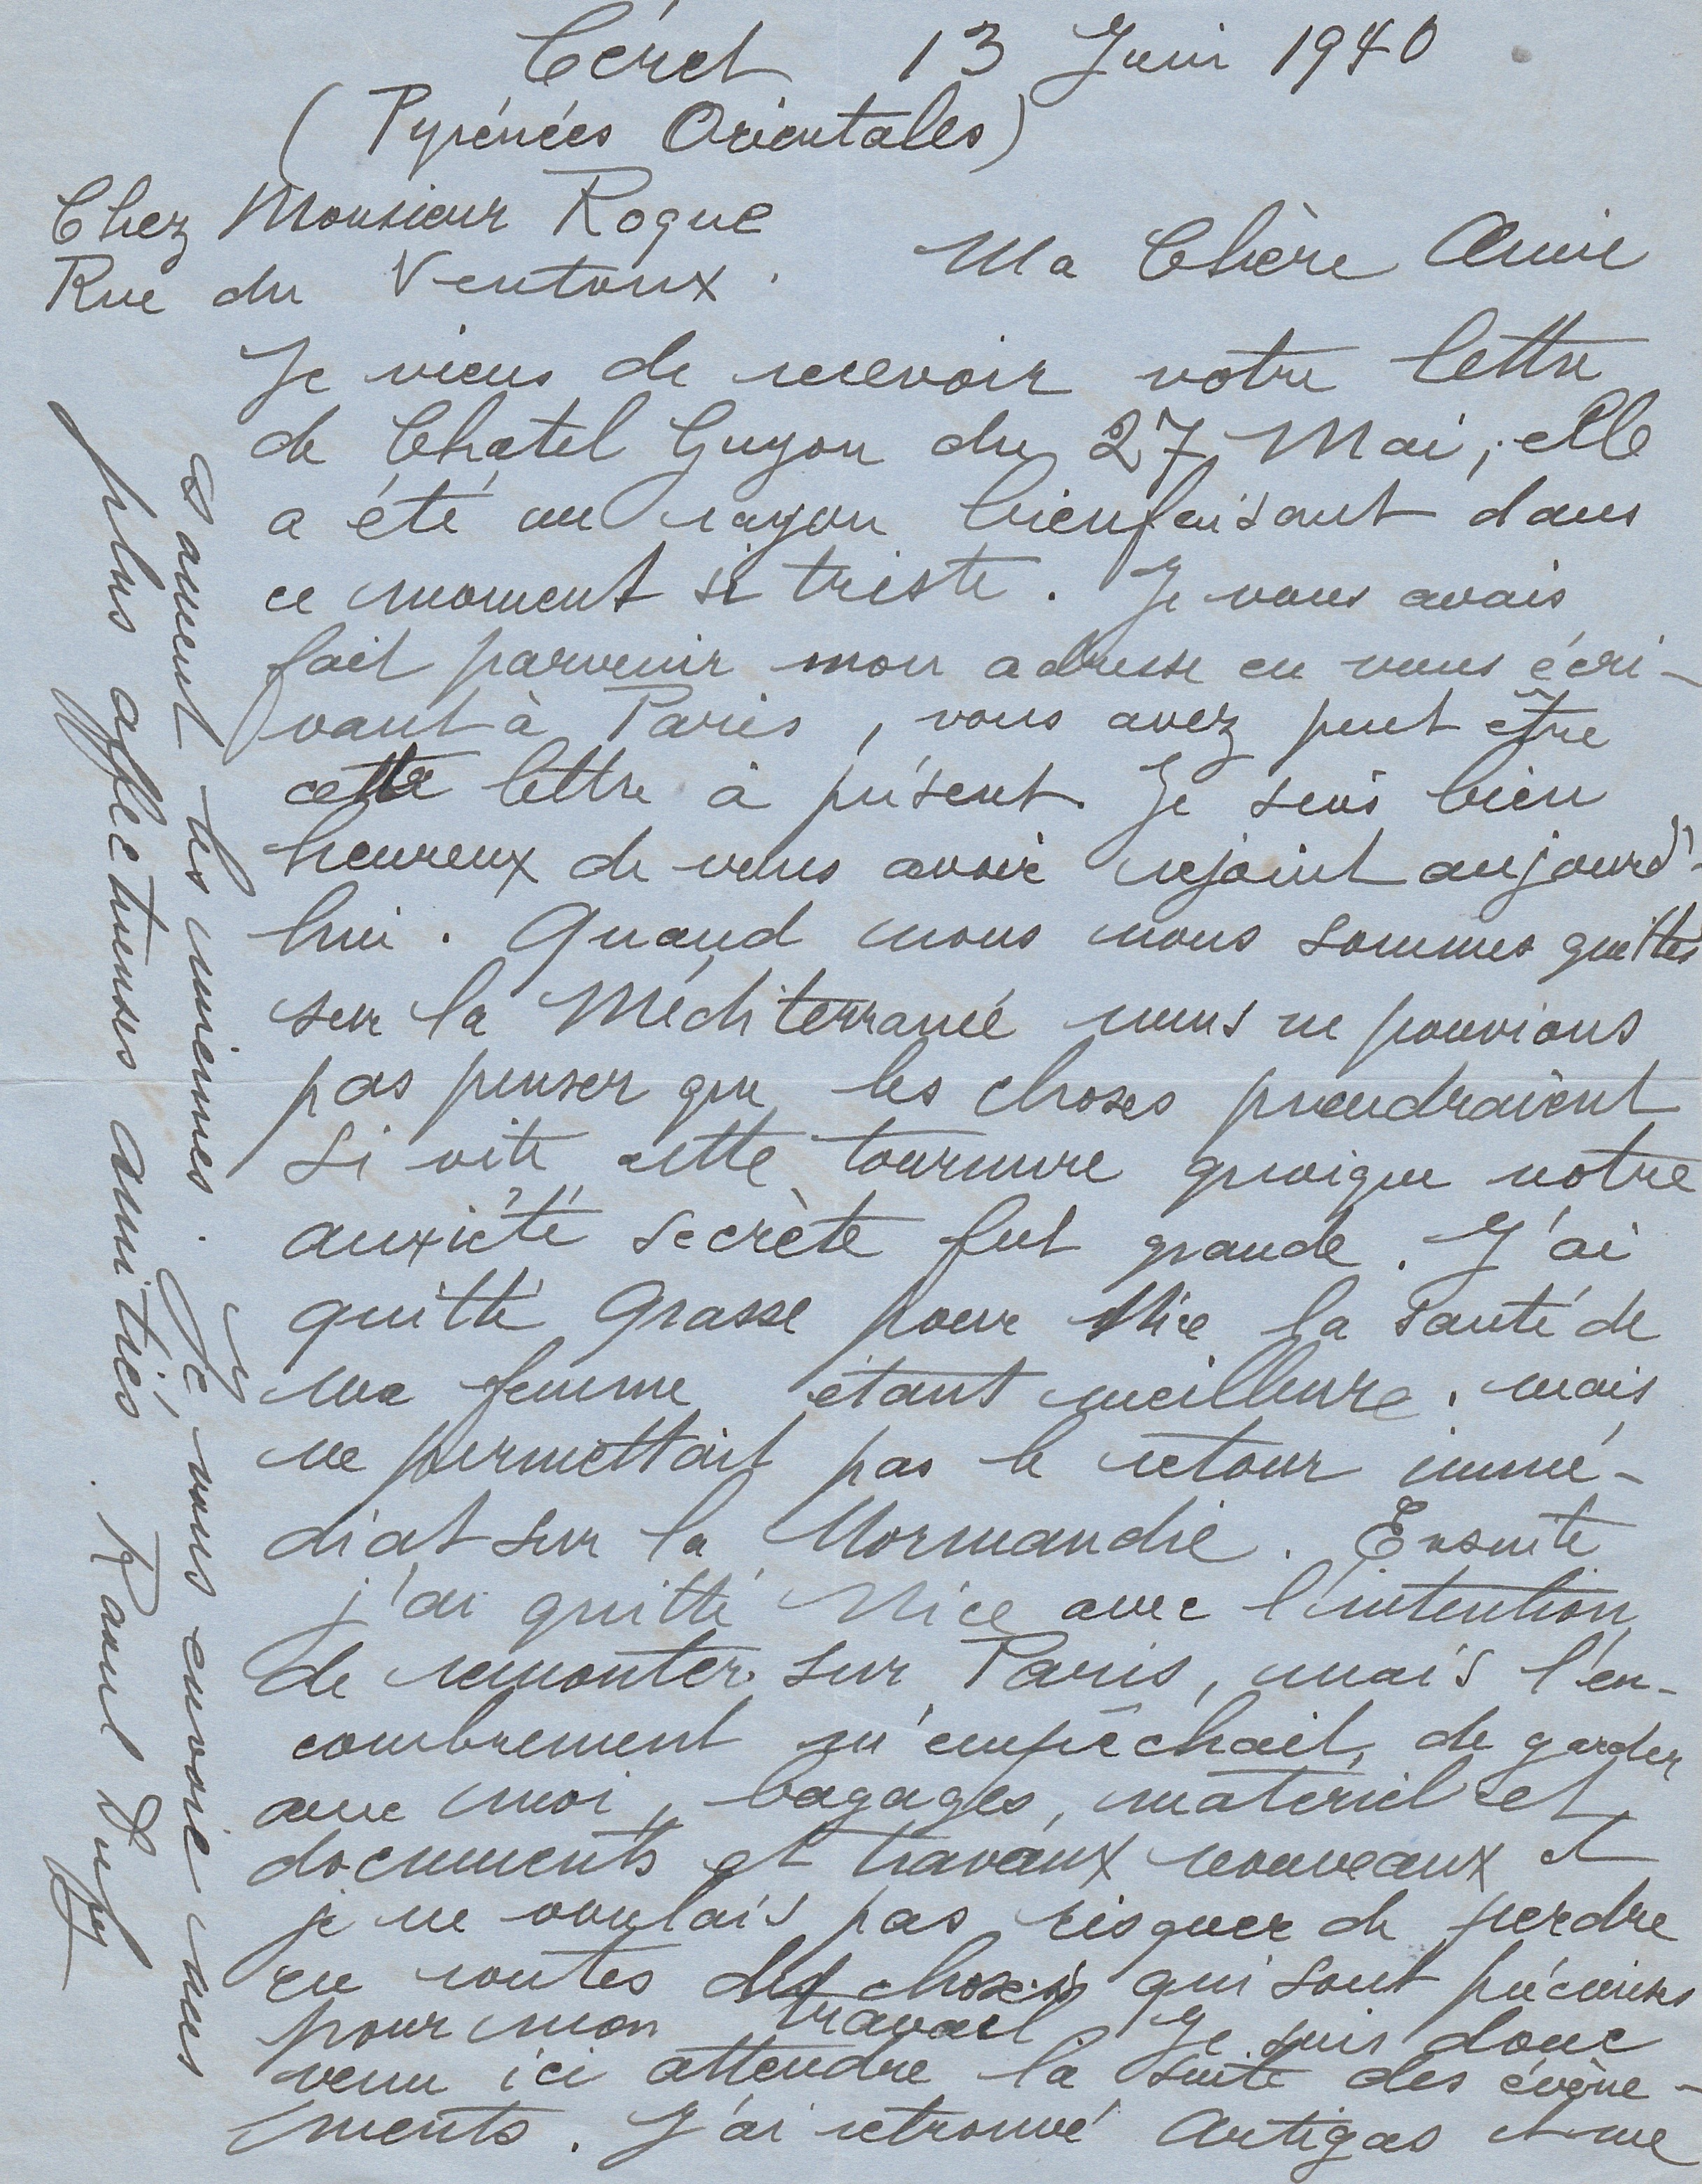 Céret 13 Juin 1940
(Pyrénées Orientales)
Chez Monsieur Roque
Rue du Ventoux.
Ma Chère Amie
Je viens de recevoir votre lettre
de Chatel Guyon du 27 Mai, elle
a été un rayon bienfaisant dans
ce moment si triste. Je vous avais
fait parvenir mon adresse en vous écri-
vant à Paris, vous avez peut être
cette lettre à présent. Je suis bien
heureux de vous avoir rejoint aujourd'-
hui. Quand nous nous sommes quittés
sur la Méditerranée nous ne pouvions
pas penser que les choses prendraient
si vite cette tournure quoique notre
anxiété secrète fut grande. J'ai
quitté Grasse pour Nice la santé de
ma femme étant meilleure. mais
ne permettait pas le retour immé-
diat sur la Normandie. Ensuite
j'ai quitté Nice avec l'intention
de remonter sur Paris, mais l'en-
combrement m'empêchait, de garder
avec moi, bagages, matériel et
documents et travaux nouveaux et
je ne voulais pas risquer de perdre
en routes des choses qui sont précieuses
pour mon travail. Je suis donc
venu ici attendre la suite des évène-
ments. J'ai retrouvé Artigas et me
. Je vous envoie mes
plus affectueuses amitiés. Raoul Dufy